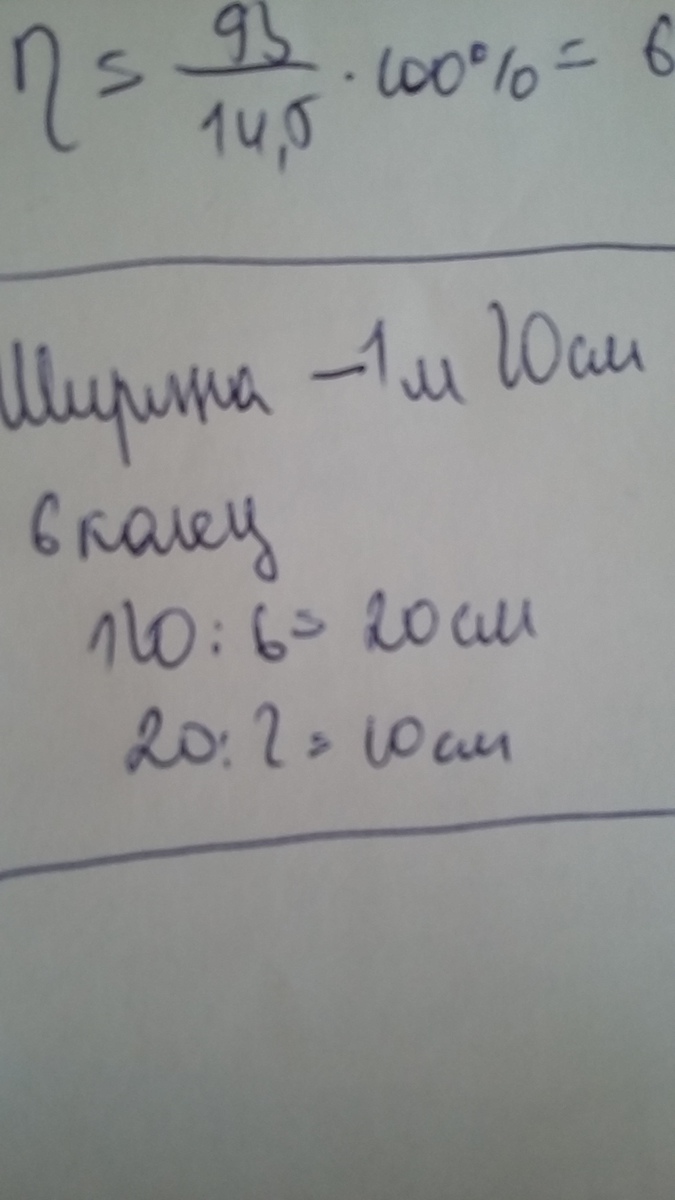 η = 93 / 14,5 · 100% = 6
Ширина – 1 м 20 см
6 колец
120 : 6 = 20 см
20 : 2 = 10 см